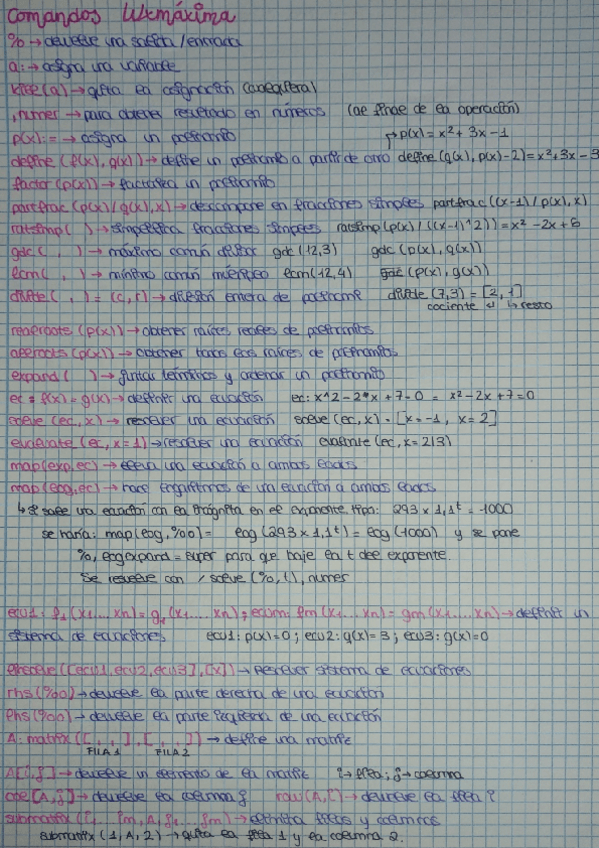 Comandos Wxmáxima
% → devuelve una salida/entrada
a: → asigna una variable
kill(a) → quita la asignación (cualquiera)
,numer → para obtener resultado en números (al final de la operación)
p(x):= → asigna un polinomio ↱ p(x) = x² + 3x - 1
define (f(x), g(x)) → define un polinomio a partir de otro define (q(x), p(x)-2) = x² + 3x - 3
factor (p(x)) → factoriza un polinomio
partfrac (p(x)/g(x), x) → descompone en fracciones simples partfrac((x-1)/p(x), x)
ratsimp ( ) → simplifica fracciones simples ratsimp(p(x)/((x-1)^2)) = x² - 2x + 6
gdc ( , ) → máximo común divisor gdc (12,3) gdc (p(x), q(x))
lcm ( , ) → mínimo común múltiplo lcm(12,4) gdc (p(x), g(x))
divide ( , ) = (c, r) → división entera de polinomio divide (7,3) = [2, 1]
cociente ↲ ↳ resto
realroots (p(x)) → obtener raíces reales de polinomios
allroots (p(x)) → obtener todas las raíces de polinomios
expand ( ) → juntar términos y ordenar un polinomio
ec: f(x) = g(x) → definir una ecuación ec: x^2 - 2*x + 7 = 0 = x² - 2x + 7 = 0
solve (ec, x) → resolver una ecuación solve (ec, x) = [x = -1, x = 2]
evaluate (ec, x=1) → resolver una ecuación evaluate (ec, x = 2/3)
map(exp, ec) → eleva una ecuación a ambos lados
map(log, ec) → hace logaritmos de una ecuación a ambos lados
↳ si sale una ecuación con la incógnita en el exponente tipo: 293 × 1,1ᵗ = -1000
se haría: map(log, %o0) = log (293 × 1,1ᵗ) = log (-1000) y se pone
%, logexpand = super para que baje la t del exponente.
Se resuelve con / solve (%, t), numer
ecu1: f₁(x₁...xn) = g₁(x₁....xn); ecum: fm(x₁...xn) = gm(x₁....xn) → definir un
sistema de ecuaciones ecu1: p(x) = 0; ecu2: q(x) = 3; ecu3: g(x) = 0
linsolve([ecu1, ecu2, ecu3], [x]) → Resolver sistema de ecuaciones
rhs (%o0) → devuelve la parte derecha de una ecuación
lhs (%o0) → devuelve la parte izquierda de una ecuación
A: matrix ([ , , ], [ , , ]) → define una matriz
FILA 1 FILA 2
A[i,j] → devuelve un elemento de la matriz i → fila; j → columna
col [A, j] → devuelve la columna j row (A, i) → devuelve la fila i
submatrix (i₁...im, A, j₁...jm) → elimina filas y columnas
submatrix (1, A, 2) → quita la fila 1 y la columna 2.